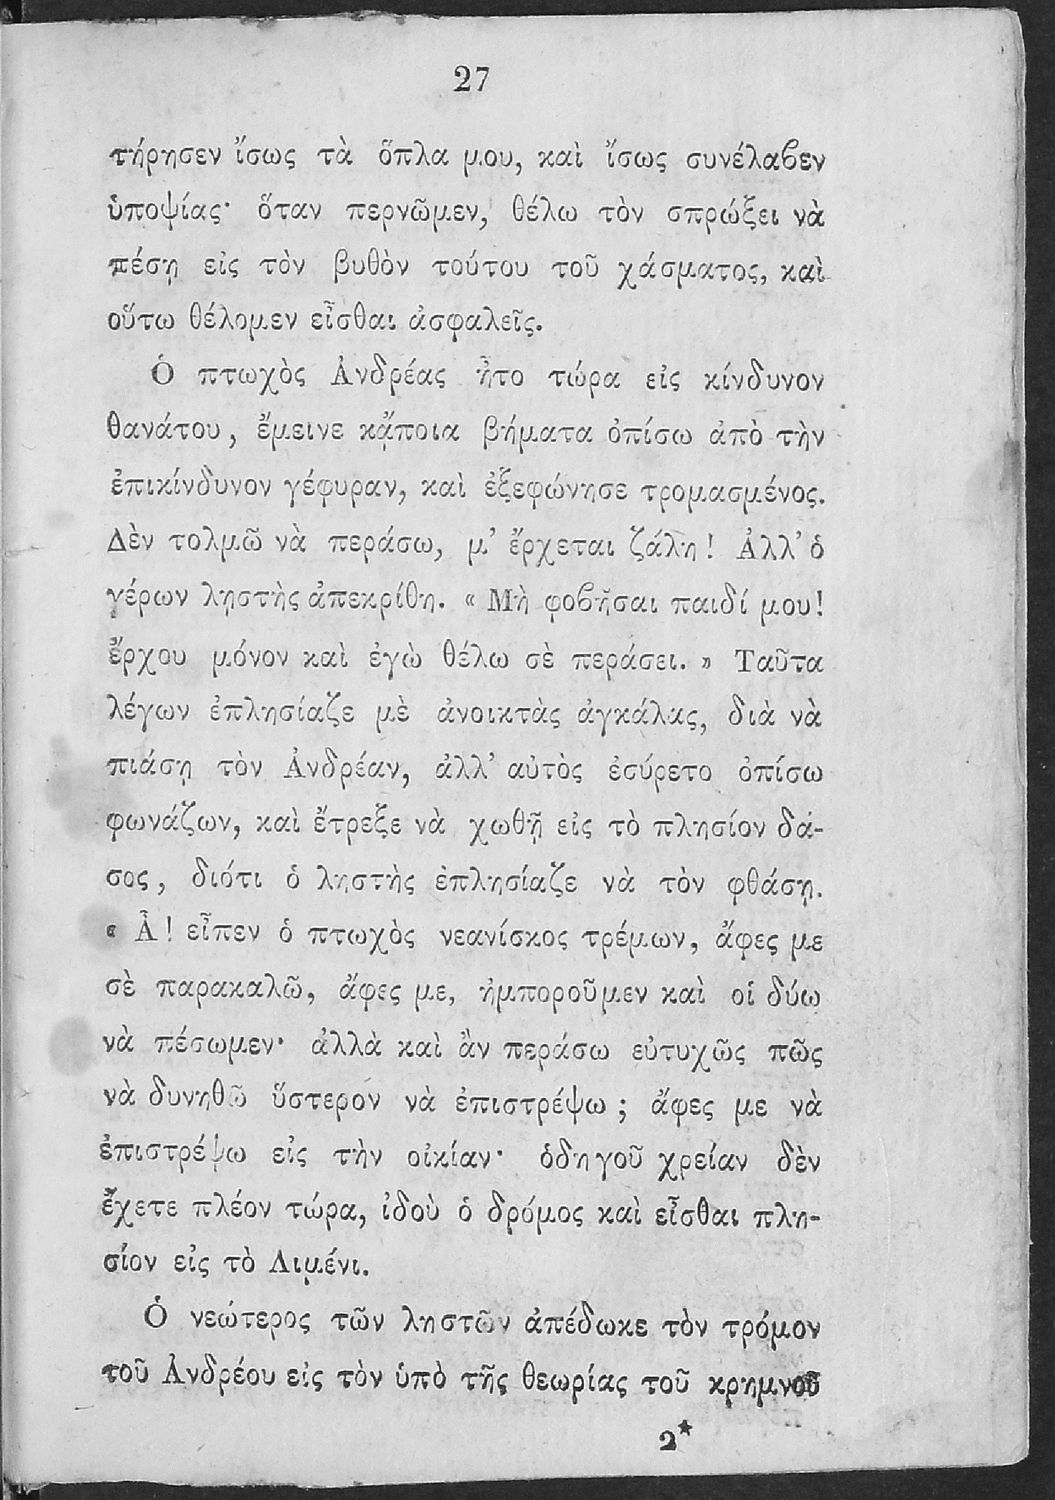 27
τήρησεν ἴσως τὰ ὅπλα μου, καὶ ἴσως συνέλαβεν
ὑποψίας· ὅταν περνῶμεν, θέλω τὸν σπρώξει νὰ
πέσῃ εἰς τὸν βυθὸν τούτου τοῦ χάσματος, καὶ
οὕτω θέλομεν εἶσθαι ἀσφαλεῖς.
Ὁ πτωχὸς Ἀνδρέας ἦτο τώρα εἰς κίνδυνον
θανάτου, ἔμεινε κᾄποια βήματα ὀπίσω ἀπὸ τὴν
ἐπικίνδυνον γέφυραν, καὶ ἐξεφώνησε τρομασμένος.
Δὲν τολμῶ νὰ περάσω, μ’ ἔρχεται ζάλη! Ἀλλ’ ὁ
γέρων λῃστὴς ἀπεκρίθη. « Μὴ φοβῆσαι παιδί μου!
ἔρχου μόνον καὶ ἐγὼ θέλω σὲ περάσει. » Ταῦτα
λέγων ἐπλησίαζε μὲ ἀνοικτὰς ἀγκάλας, διὰ νὰ
πιάσῃ τὸν Ἀνδρέαν, ἀλλ’ αὐτὸς ἐσύρετο ὀπίσω
φωνάζων, καὶ ἔτρεξε νὰ χωθῇ εἰς τὸ πλησίον δά-
σος, διότι ὁ λῃστὴς ἐπλησίαζε νὰ τὸν φθάσῃ.
« Ἆ! εἶπεν ὁ πτωχὸς νεανίσκος τρέμων, ἄφες με
σὲ παρακαλῶ, ἄφες με, ἠμποροῦμεν καὶ οἱ δύω
νὰ πέσωμεν· ἀλλὰ καὶ ἂν περάσω εὐτυχῶς πῶς
νὰ δυνηθῶ ὕστερον νὰ ἐπιστρέψω; ἄφες με νὰ
ἐπιστρέψω εἰς τὴν οἰκίαν· ὁδηγοῦ χρείαν δὲν
ἔχετε πλέον τώρα, ἰδοὺ ὁ δρόμος καὶ εἶσθαι πλη-
σίον εἰς τὸ Λιμένι.
Ὁ νεώτερος τῶν λῃστῶν ἀπέδωκε τὸν τρόμον
τοῦ Ἀνδρέου εἰς τὸν ὑπὸ τῆς θεωρίας τοῦ κρημνοῦ
2*